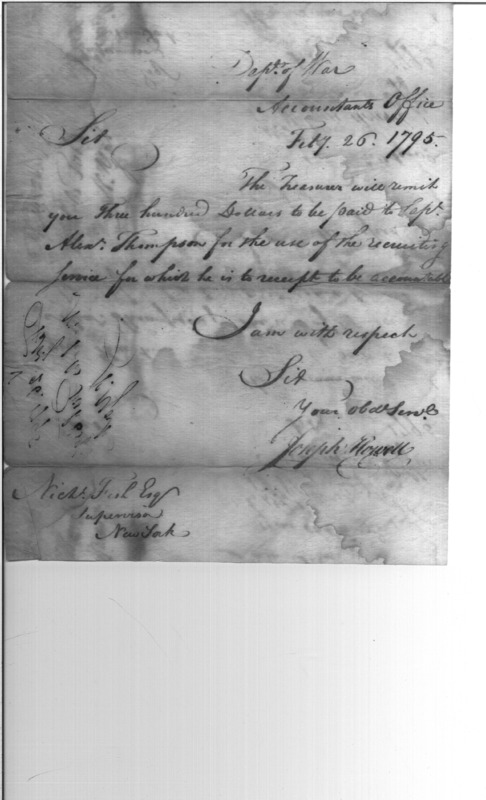 Dept. of War
Accountants Office
Feby. 26. 1795.
Sir
The Treasurer will remit
you three hundred Dollars to be paid to Capt.
Alexr. Thompson for the use of the recruiting
service for which he is to receipt to be accountable
I am with respect
Sir
Your obdt. Servt.
Joseph Howell
Nichs. Fish Esq
Supervisor
New York